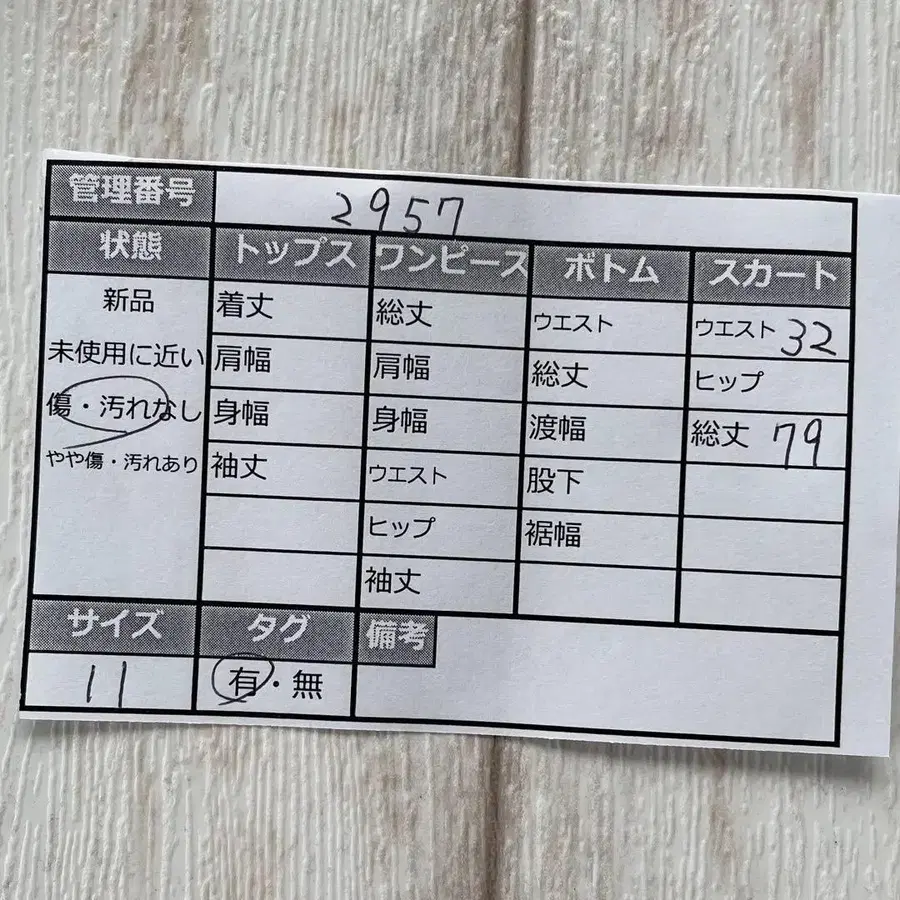 管理番号 2957
状態 トップス ワンピース ボトム スカート
新品 着丈 総丈 ウエスト ウエスト 32
未使用に近い 肩幅 肩幅 総丈 ヒップ
傷・汚れなし 身幅 身幅 渡幅 総丈 79
やや傷・汚れあり 袖丈 ウエスト 股下
ヒップ 裾幅
袖丈
サイズ タグ 備考
11 有・無